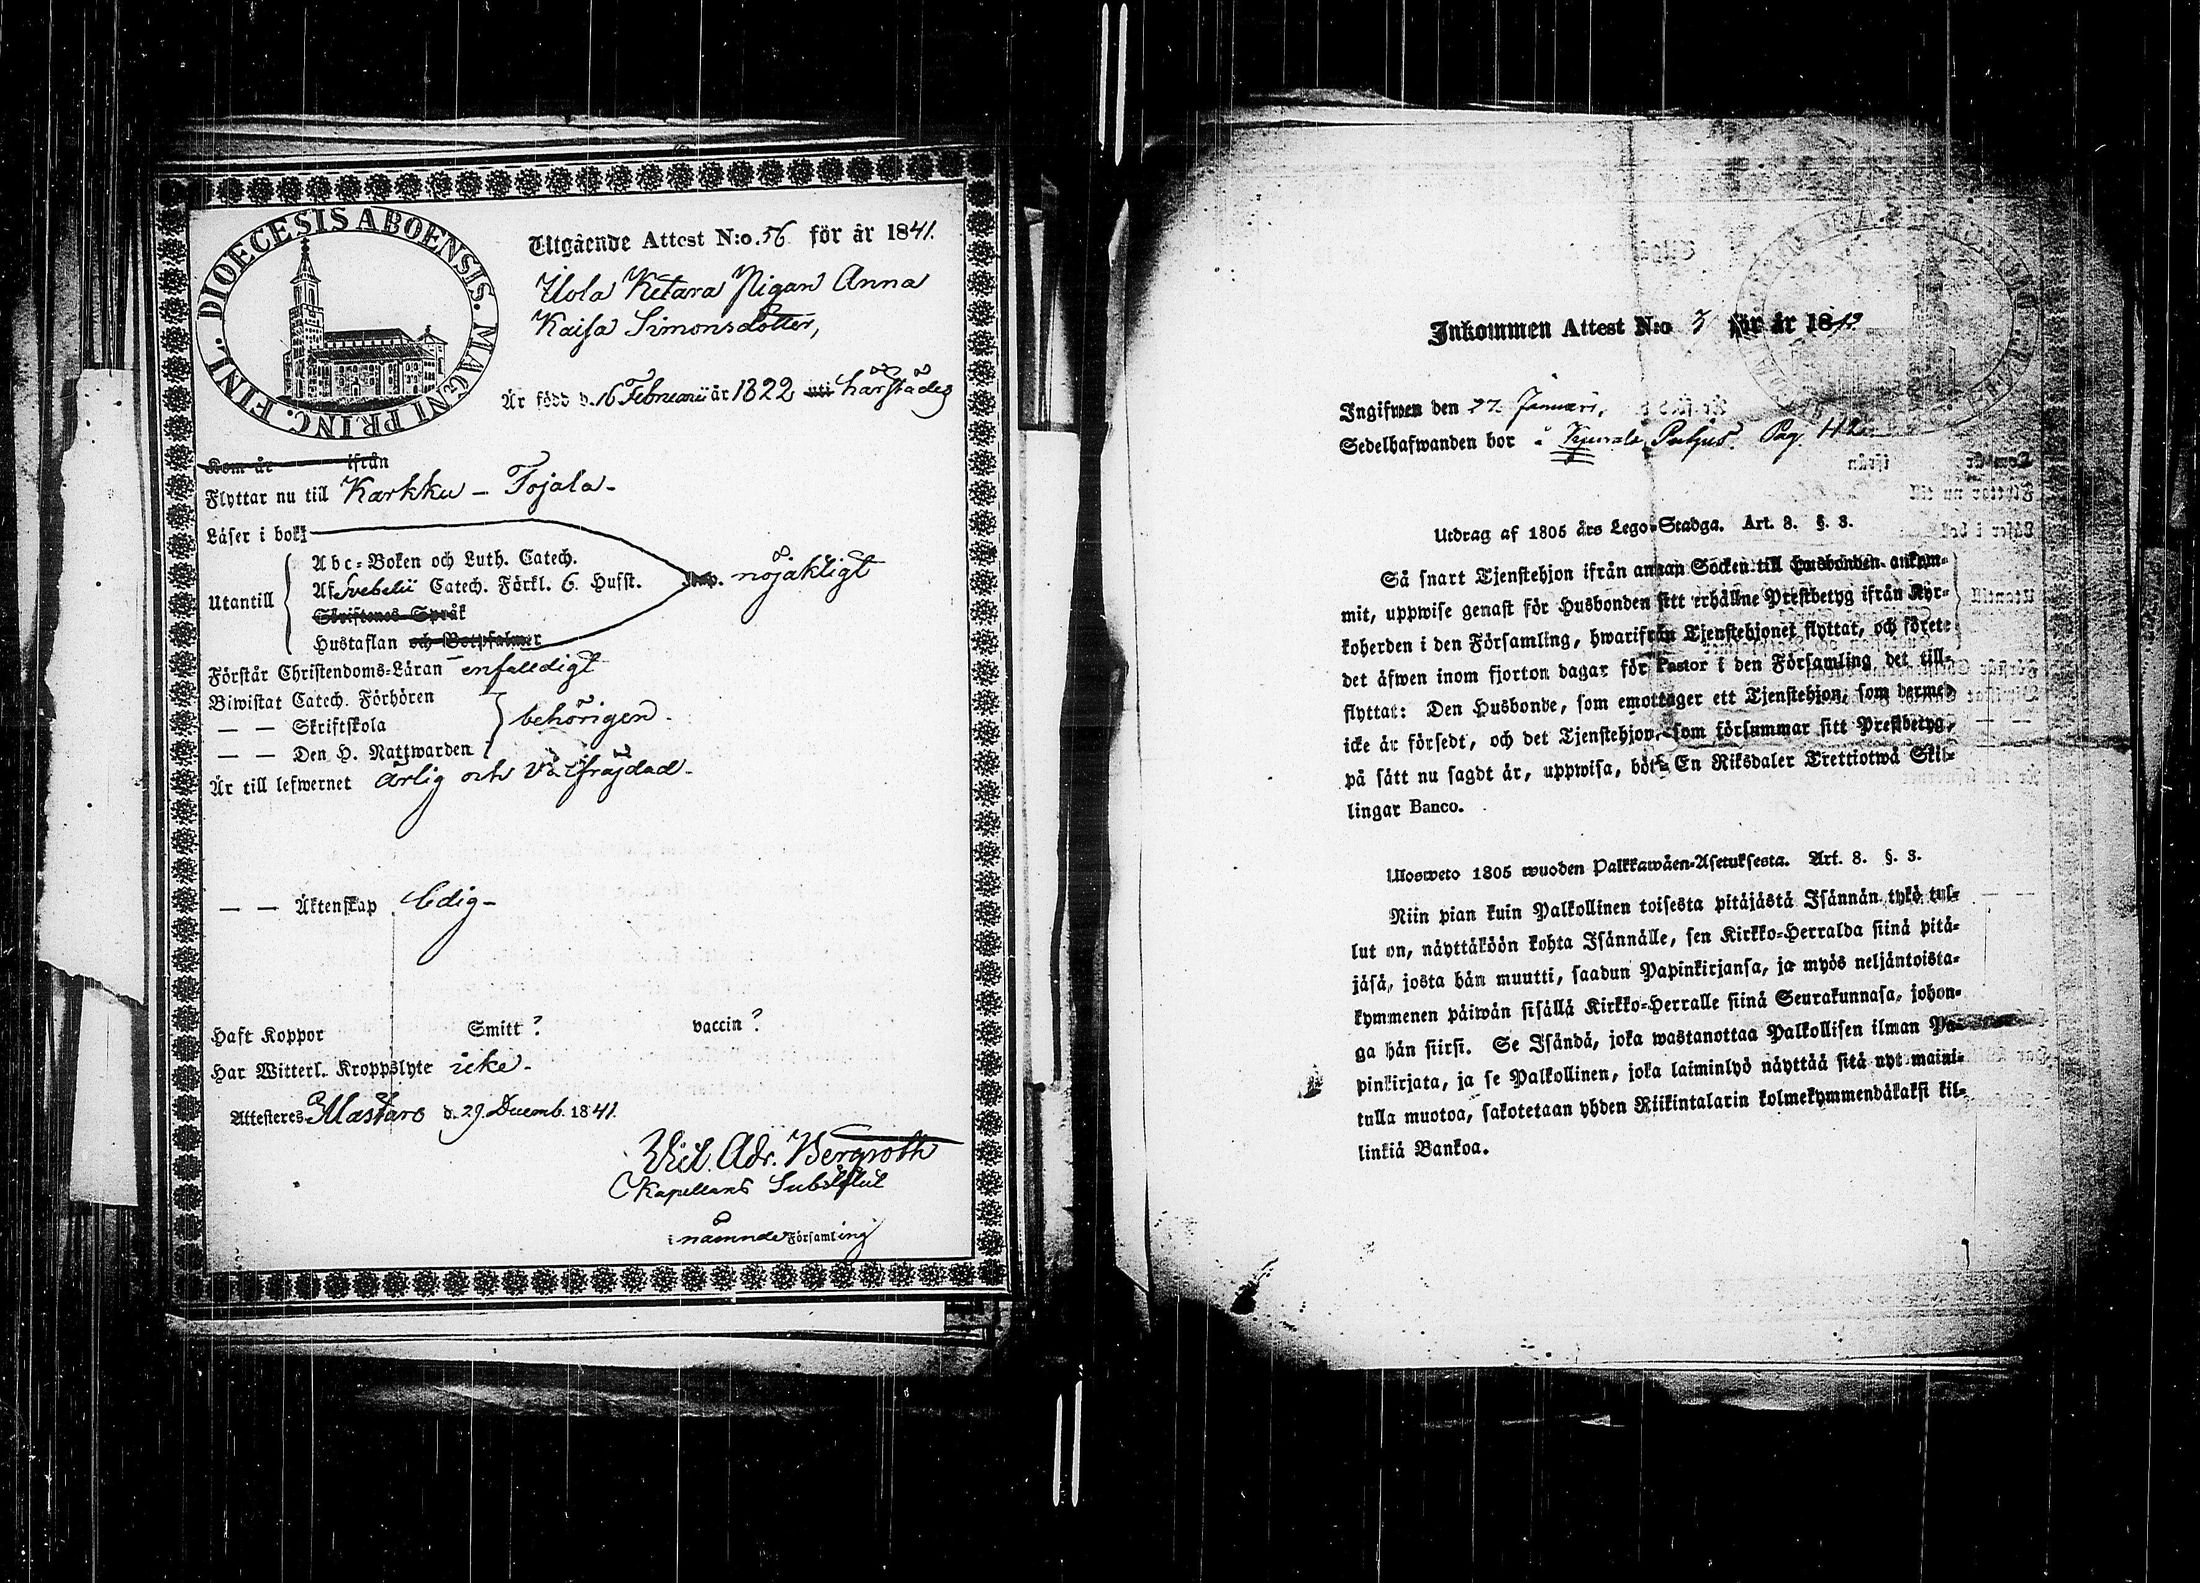 DIOECESIS ABOENSIS. MAGNI PRINC. FINL.
Utgående Attest N:o. 56 för år 1841.
Kaisa Simonsdotter,
Är född d. 16 Februarii år 1822 uti härstädes
Kom år ifrån
Flyttar nu till Karkku – Tojala –
Läser i bok
Utantill
Abc-Boken och Luth. Catech.
Af Svebelii Catech. Förkl. 6. Hufst.
nöjaktigt
Skriftenes Språk
Hustaflan och Botpsalmer
Förstår Christendoms-Läran enfaldigt
Biwistat Catech. Förhören
— — Skriftskola
behörigen –
— — Den H. Nattwarden
Är till lefwernet ärlig och välfräjdad –
— — Äktenskap ledig –
Haft Koppor Smitt? vaccin?
Har Witterl. Kroppslyte icke –
Attesteres Mastaro d. 29. Decemb. 1841.
Vict. Adr. Bergroth
Kapellans Substitut
i nämnde Församling
Inkommen Attest N:o 3 för år 18
Ingifwen den 27. Januari,
Sedelhafwanden bor å Pag.
Utdrag af 1805 års Lego-Stadga. Art. 8. §. 3.
Så snart Tjenstehjon ifrån annan Socken till Husbonden ankom-
mit, uppwise genast för Husbonden sitt erhållne Prestbetyg ifrån Kyr-
koherden i den Församling, hwarifrån Tjenstehjonet flyttat, och förete
det äfwen inom fjorton dagar för Pastor i den Församling det till-
flyttat: Den Husbonde, som emottager ett Tjenstehjon, som dermed
icke är försedt, och det Tjenstehjon, som försummar sitt Prestbetyg,
på sätt nu sagdt är, uppwisa, böte En Riksdaler Trettiotwå Skil-
lingar Banco.
Ulosweto 1805 wuoden Palkkawäen-Asetuksesta. Art. 8. §. 3.
Niin pian kuin Palkollinen toisesta pitäjästä Isännän tykö tul-
lut on, näyttäköön kohta Isännälle, sen Kirkko-Herralda siinä pitä-
jäsä, josta hän muutti, saadun Papinkirjansa, ja myös neljäntoista-
kymmenen päiwän sisällä Kirkko-Herralle siinä Seurakunnasa, johon-
ga hän siirsi. Se Isändä, joka wastanottaa Palkollisen ilman Pa-
pinkirjata, ja se Palkollinen, joka laiminlyö näyttää sitä nyt maini-
tulla muotoa, sakotetaan yhden Riikintalarin kolmekymmendäkaksi kil-
linkiä Bankoa.